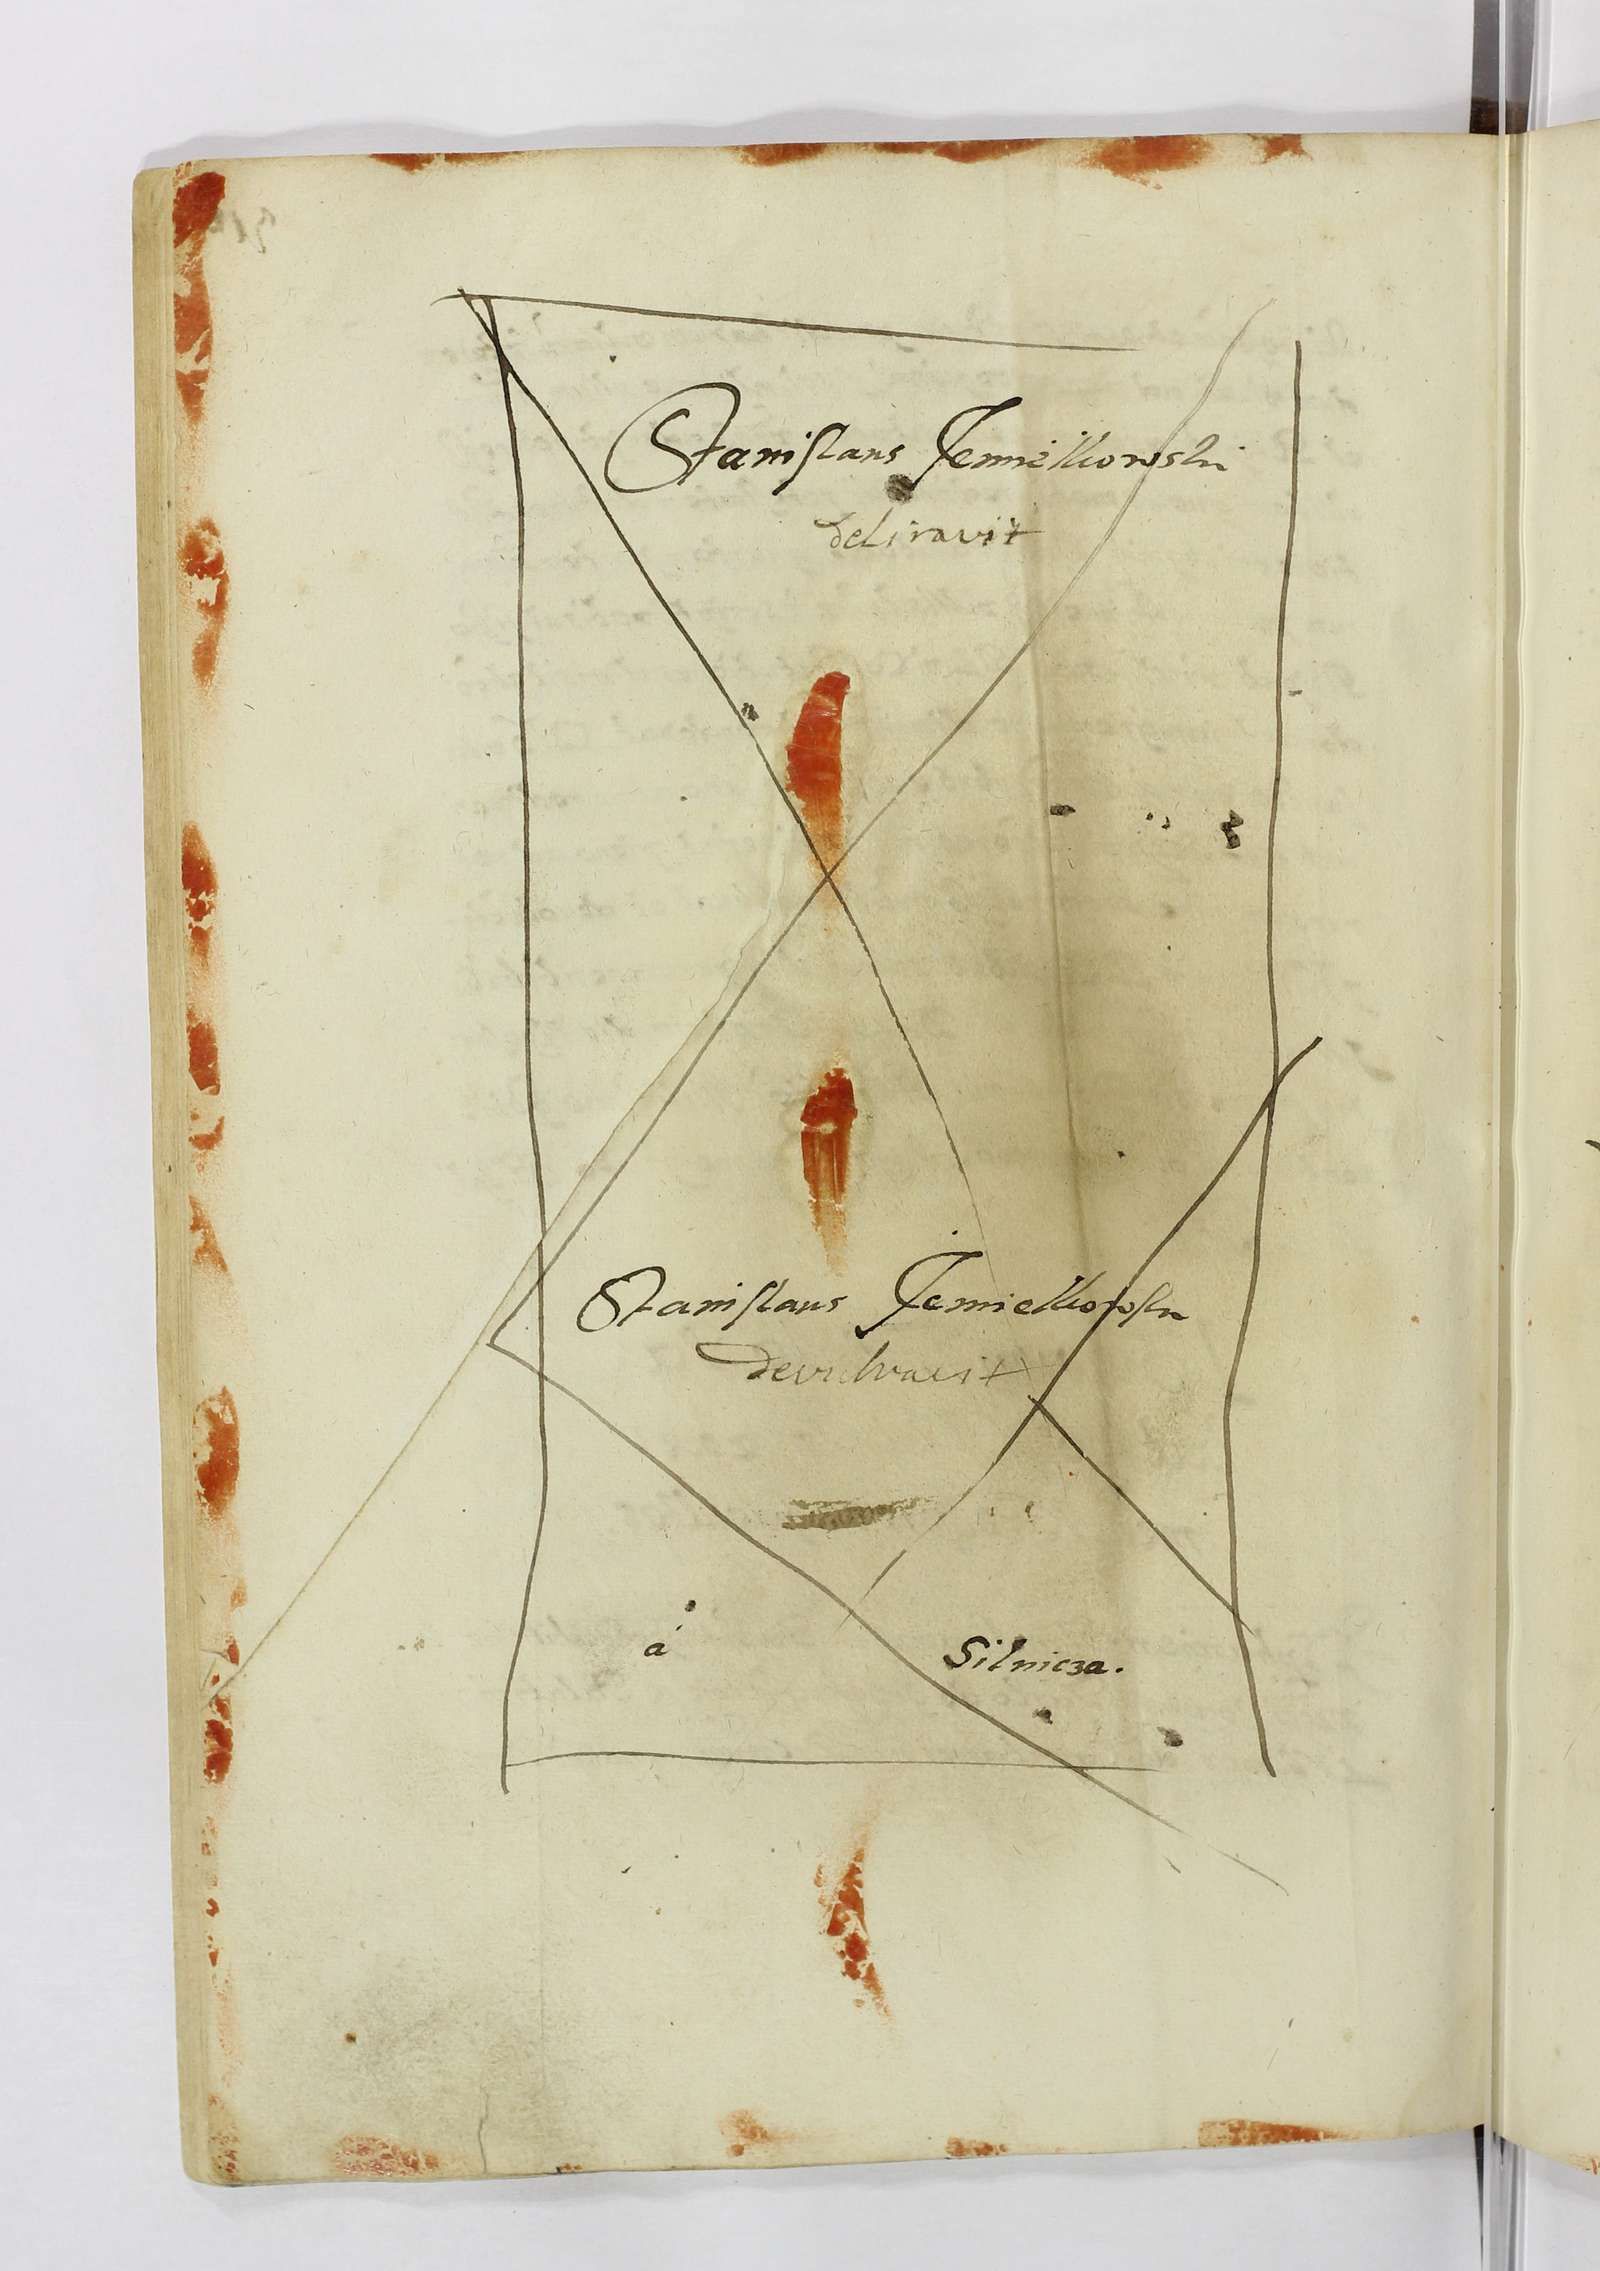 Stanislaus Jemielkowski
deliravit
Stanislaus Jemielkowski
á Silnicza.